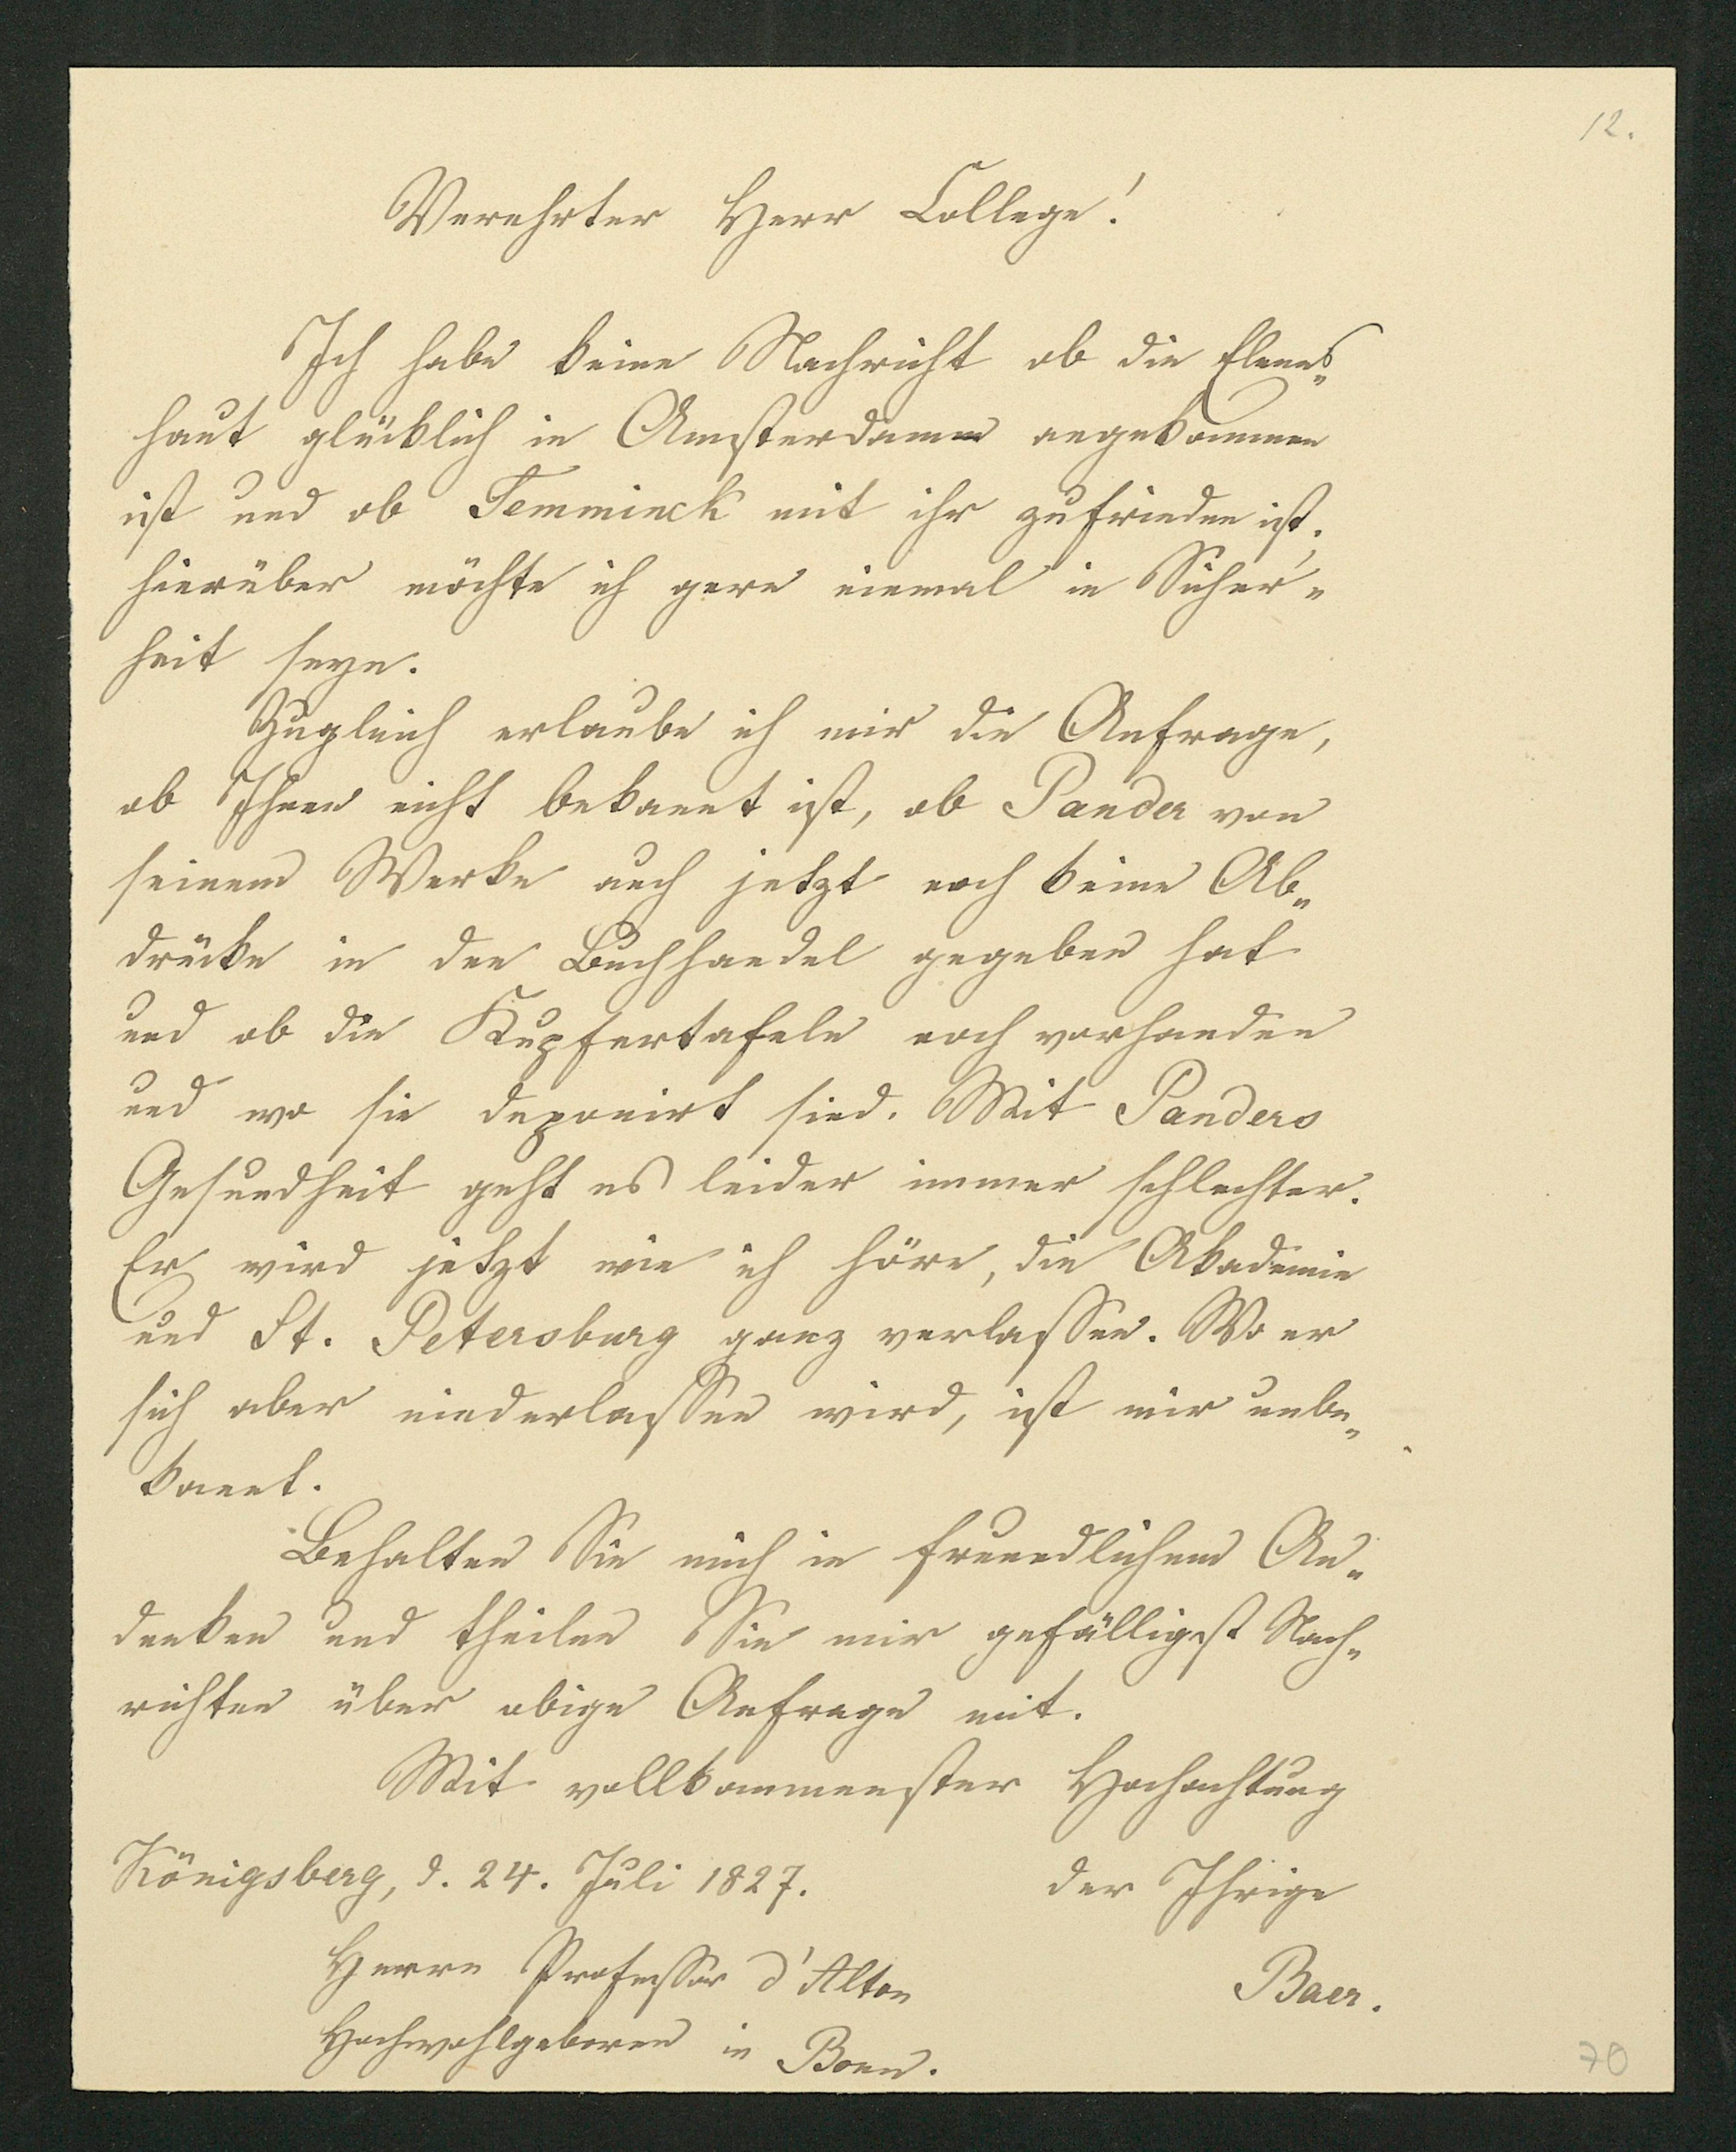 12.
Verehrter Herr College!
Ich habe keine Nachricht ob die Elens-
haut glücklich in Amsterdamm angekommen
ist und ob Temminck mit ihr zufrieden ist,
hierüber möchte ich gern einmal in Sicher-
heit seyn.
Zugleich erlaube ich mir die Anfrage,
ob Ihnen nicht bekannt ist, ob Pander von
seinem Werke auch jetzt noch keine Ab-
drücke in den Buchhandel gegeben hat
und ob die Kupfertafeln noch vorhanden
und wo sie deponirt sind. Mit Panders
Gesundheit geht es leider immer schlechter.
Er wird jetzt wie ich höre, die Akademie
und St. Petersburg ganz verlassen. Wo er
sich aber niederlassen wird, ist mir unbe-
kannt.
Behalten Sie mich in freundlichem An-
denken und theilen Sie mir gefälligst Nach-
richten über obige Anfrage mit.
Mit vollkommenster Hochachtung
Königsberg, d. 24. Juli 1827.
der Ihrige
Herrn Professor d'Alton
Baer.
Hochwohlgeboren in Bonn.
70